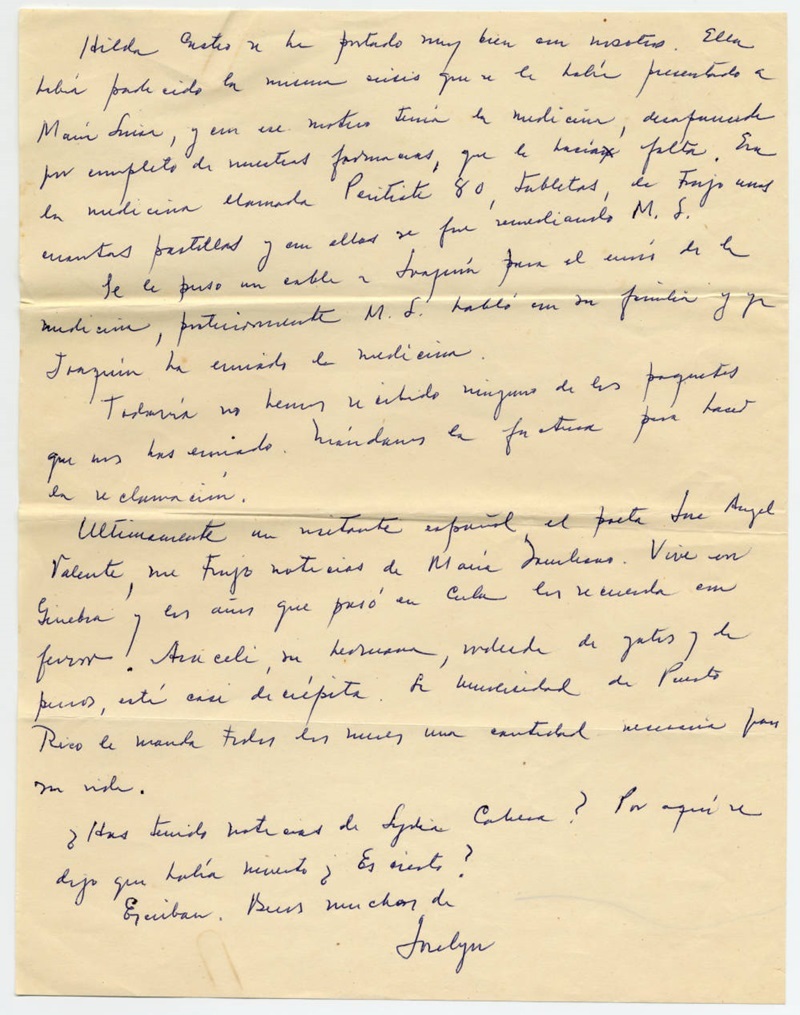 Hilda Castro se ha portado muy bien con nosotros. Ella
había padecido la misma crisis que se le había presentado a
María Luisa, y con ese motivo tenía la medicina, desaparecida
por completo de nuestras farmacias, que le hacía falta. Era
la medicina llamada 80, tabletas, le trajo unas
cuantas pastillas y con ellas se fue remediando M. L.
Se le puso un cable a Joaquín para el envío de la
medicina, posteriormente M. L. habló con su familia y ya
Joaquín ha enviado la medicina.
Todavía no hemos recibido ninguno de los paquetes
que nos has enviado. Mándanos la factura para hacer
la reclamación.
Ultimamente un visitante español, el poeta José Angel
Valente, me trajo noticias de María Zambrano. Vive en
Ginebra y los años que pasó en Cuba los recuerda con
fervor. Araceli, su hermana, rodeada de gatos y de
perros, está casi decrépita. La Universidad de Puerto
Rico le manda todos los meses una cantidad necesaria para
su vida.
¿Has tenido noticias de Lydia Cabrera? Por aquí se
dijo que había muerto ¿Es cierto?
Escriban. Besos muchos de
Joselyn